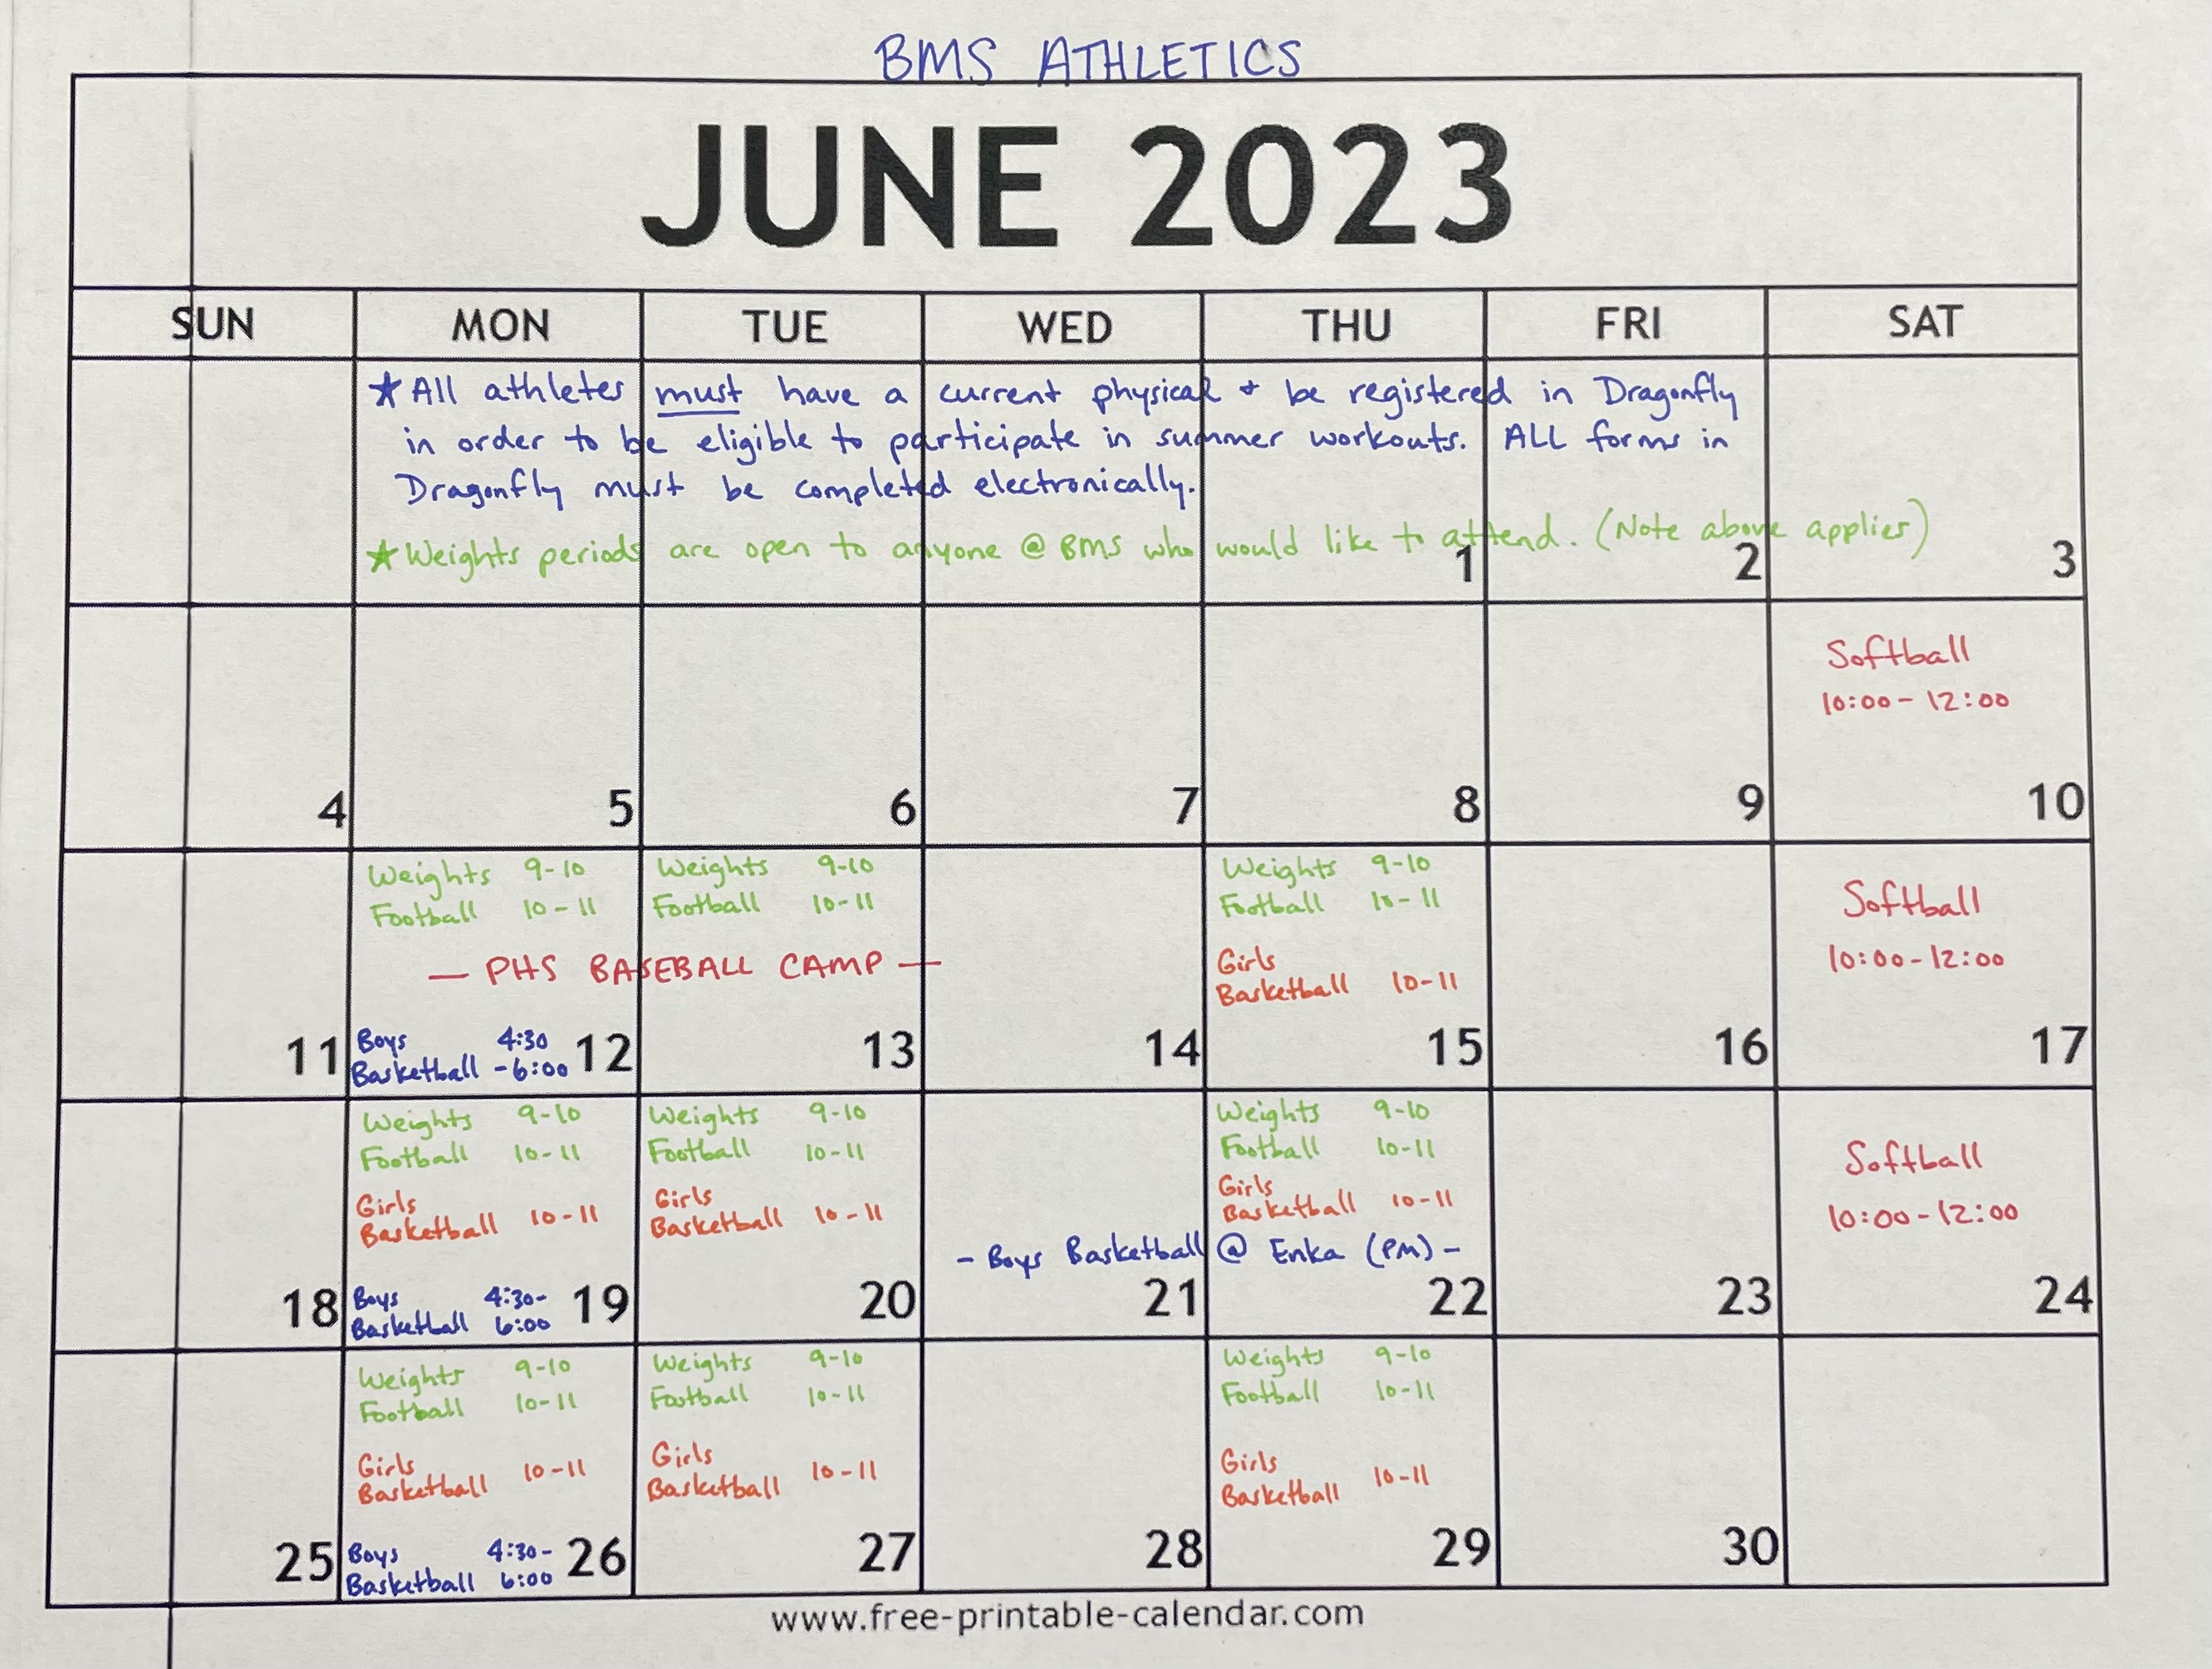 BMS ATHLETICS
JUNE 2023
SUN MON TUE WED THU FRI SAT
★ All athletes must have a current physical + be registered in Dragonfly
in order to be eligible to participate in summer workouts. ALL forms in
Dragonfly must be completed electronically.
★ Weights periods are open to anyone @ BMS who would like to attend. (Note above applies)
1 2 3
Softball
10:00 - 12:00
4 5 6 7 8 9 10
Weights 9-10 Weights 9-10 Weights 9-10
Football 10-11 Football 10-11 Football 10-11
Softball
— PHS BASEBALL CAMP —
Girls
Basketball 10-11
10:00-12:00
Boys 4:30
Basketball -6:00
11 12 13 14 15 16 17
Weights 9-10 Weights 9-10 Weights 9-10
Football 10-11 Football 10-11 Football 10-11
Softball
Girls Girls Girls
Basketball 10-11 Basketball 10-11 Basketball 10-11
10:00-12:00
- Boys Basketball @ Enka (PM) -
Boys 4:30-
Basketball 6:00
18 19 20 21 22 23 24
Weights 9-10 Weights 9-10 Weights 9-10
Football 10-11 Football 10-11 Football 10-11
Girls Girls Girls
Basketball 10-11 Basketball 10-11 Basketball 10-11
Boys 4:30-
Basketball 6:00
25 26 27 28 29 30
www.free-printable-calendar.com